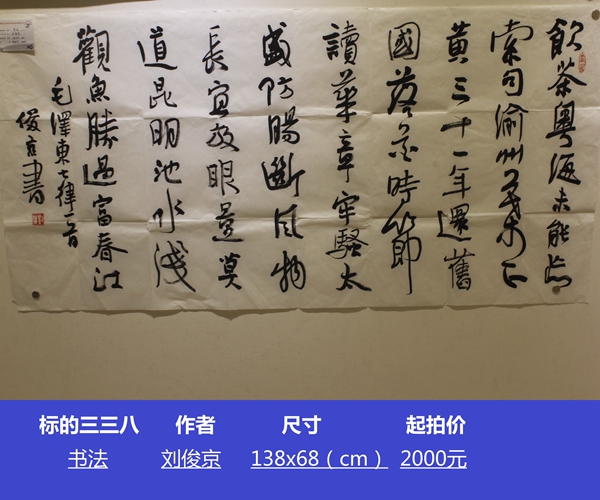 飲茶粵海未能忘
索句渝州葉正
黃三十一年還舊
國落花時節
讀華章牢騷太
盛防腸斷風物
長宜放眼量莫
道昆明池水淺
觀魚勝過富春江
毛澤東七律一首
俊京書
标的三三八 作者 尺寸 起拍价
书法 刘俊京 138x68（cm） 2000元